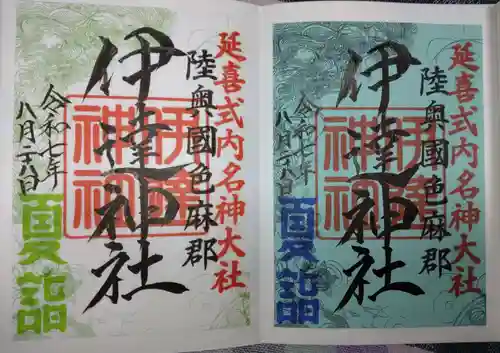 延喜式内名神大社
陸奥國色麻郡
伊達神社
伊達
神社
令和七年
八月二八日
夏詣
延喜式内名神大社
陸奥國色麻郡
伊達神社
伊達
神社
令和七年
八月二八日
夏詣